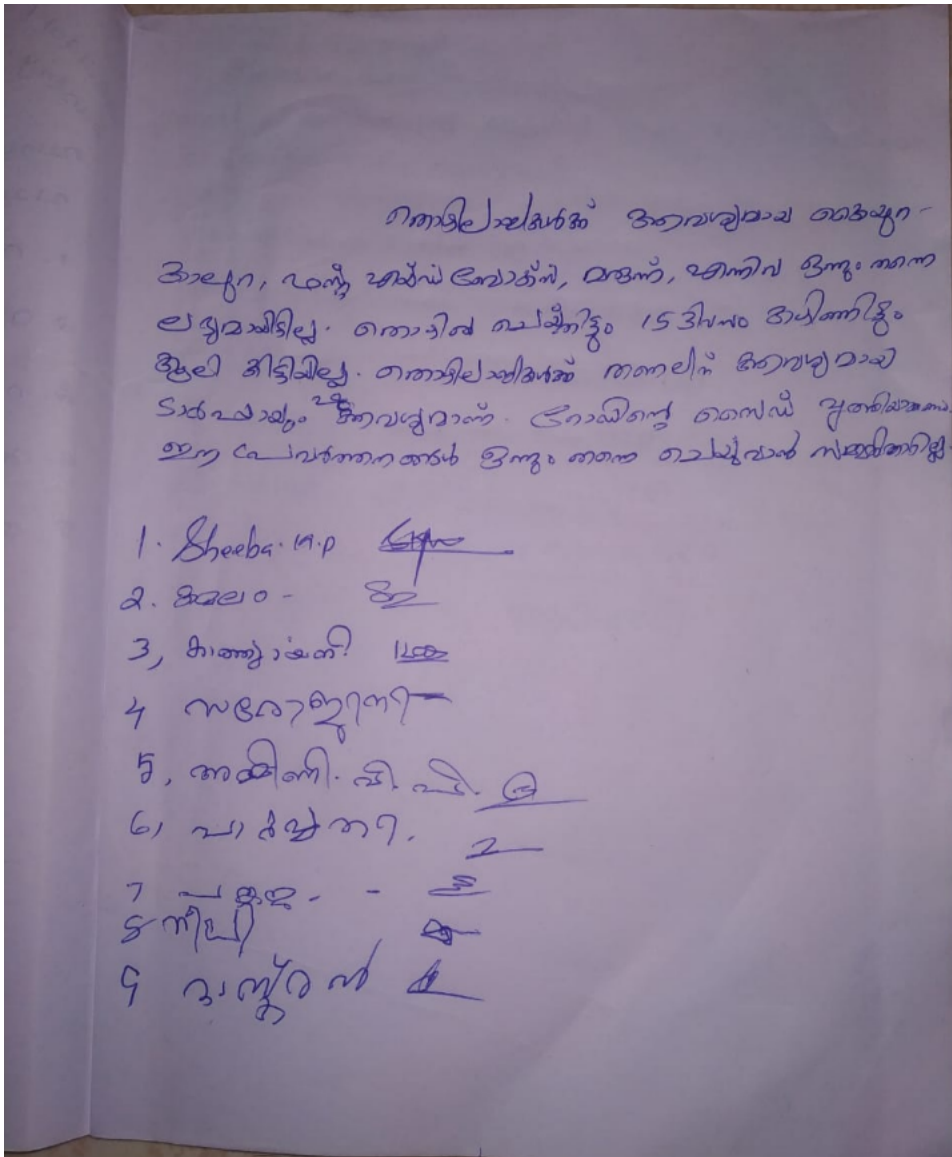 തൊഴിലാളികൾക്ക് ആവശ്യമായ കൈയുറ-
കാലുറ, ഫസ്റ്റ് എയ്ഡ് ബോക്സ്, മരുന്ന്, എന്നിവ ഒന്നും തന്നെ
ലഭ്യമായിട്ടില്ല. തൊഴിൽ ചെയ്തിട്ടും 15 ദിവസം കഴിഞ്ഞിട്ടും
കൂലി കിട്ടിയില്ല. തൊഴിലാളികൾക്ക് തണലിന് ആവശ്യമായ
ടാർപ്പായും ആവശ്യമാണ്. റോഡിന്റെ സൈഡ്
ഈ പ്രവർത്തനങ്ങൾ ഒന്നും തന്നെ ചെയ്യുവാൻ
1. Sheeba. M.P
2. കമലം -
3, കാർത്ത്യായനി
4 സരോജിനി
5, അമ്മിണി. വി. പി.
6, പാർവ്വതി.
7 പങ്കജ. -
8 നീലി
9 ഭാസ്ക്കരൻ